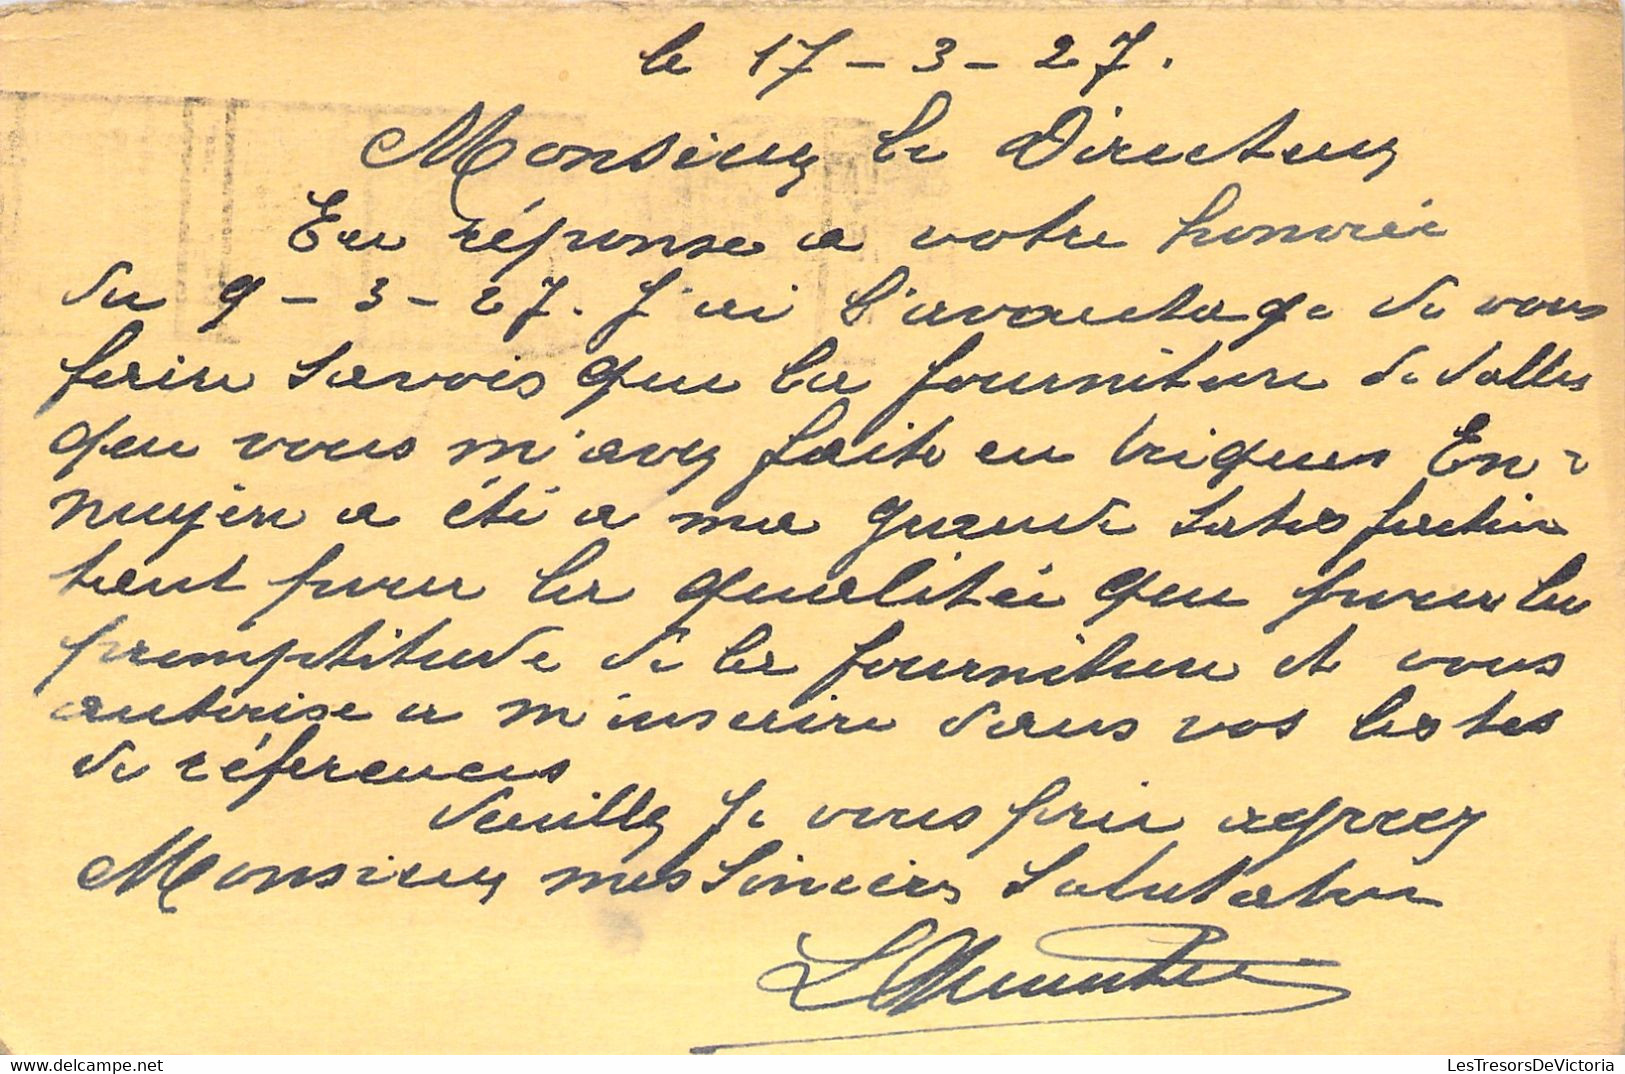 le 17-3-27.
Monsieur le Directeur
En réponse a votre honorée
du 9-3-27. J'ai l'avantage de vous
faire savois que la fourniture de dalles
que vous m'avez faite en briques En-
nuyère a été a ma grande satisfaction
tant pour la qualitée que pour la
promptitude de la fourniture et vous
autorise a m'inscrire dans vos listes
de références
Veuillez je vous prie agréez
Monsieur mes Sincères Salutation
LesTresorsDeVictoria
delcampe.net